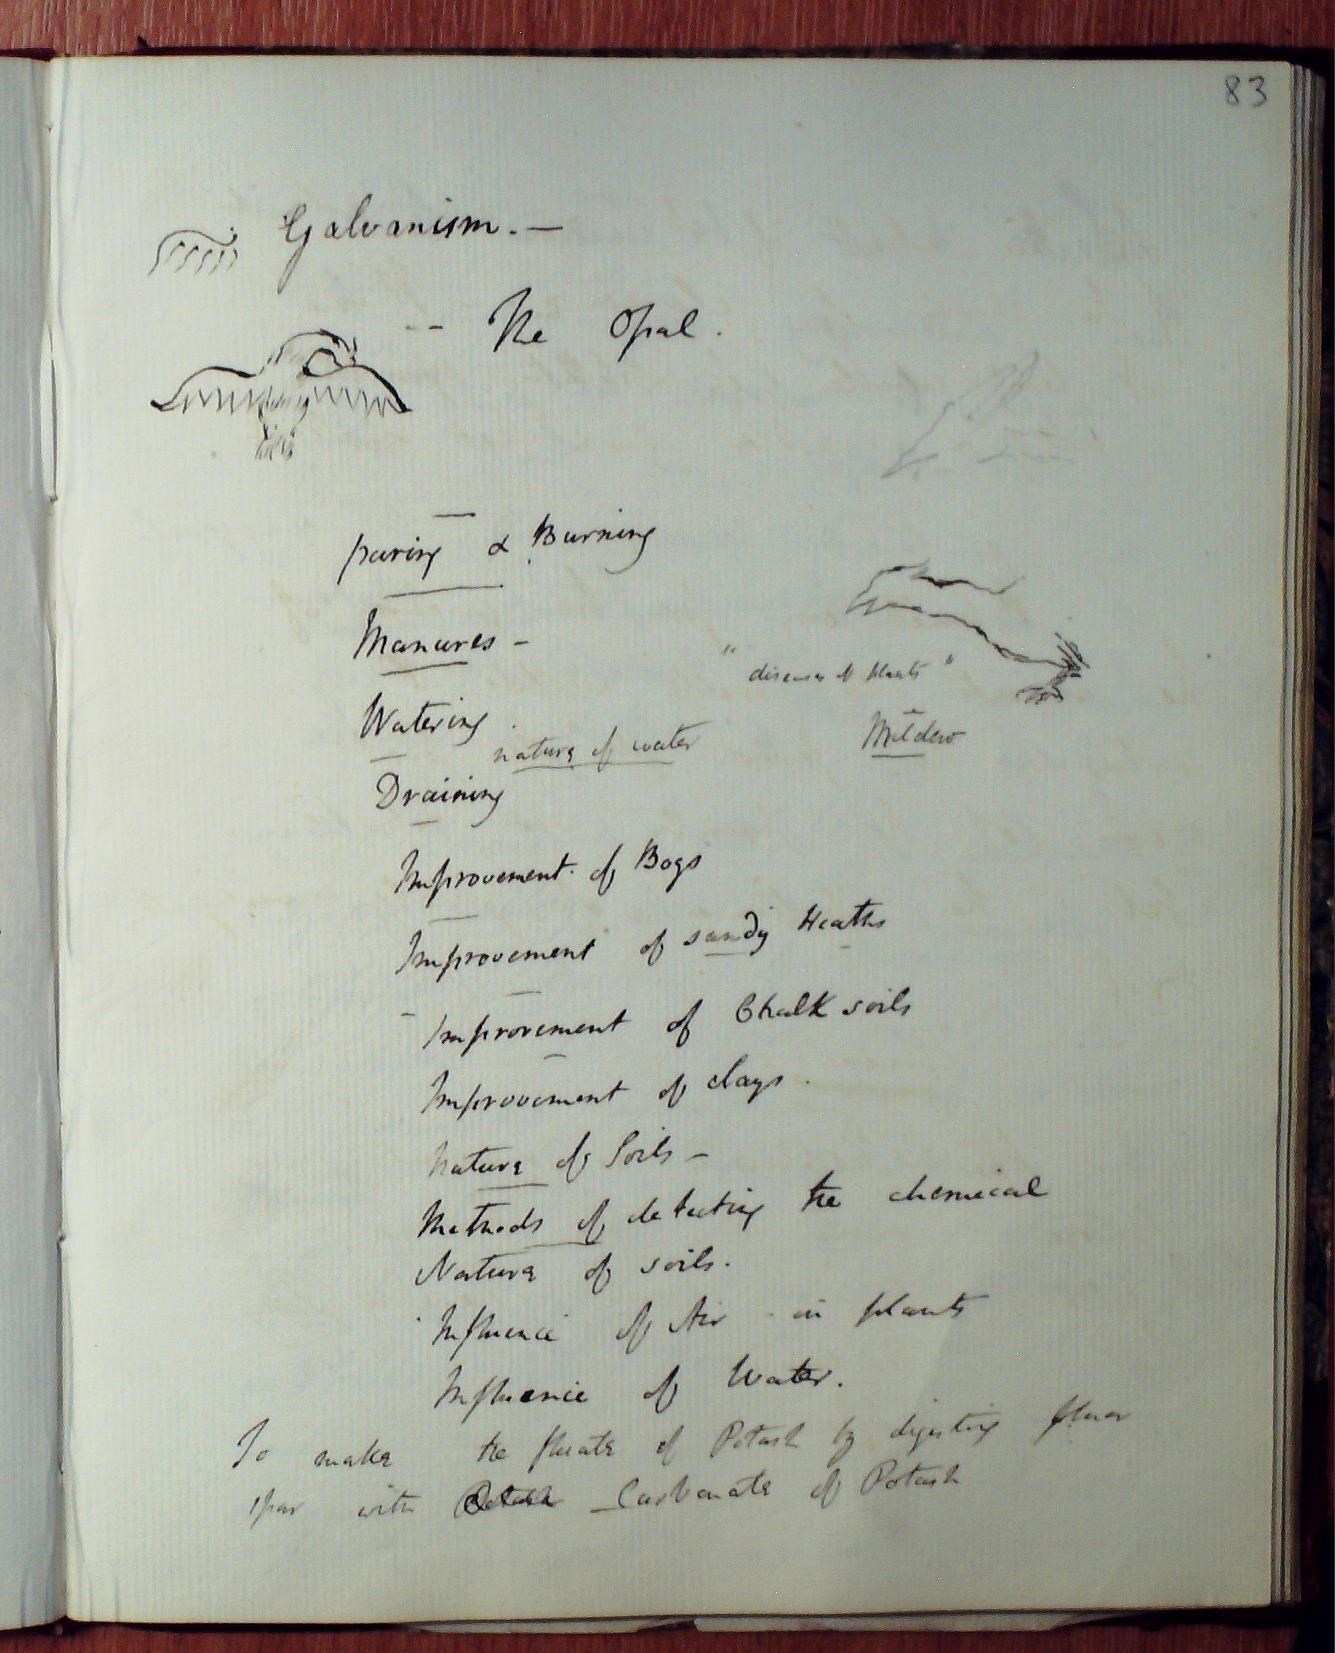 83
Galvanism. —
-- The Opal.
paring & Burning
Manures -
Watering
"diseases of plants"
nature of water
Mildew
Draining
Improvement of Bogs
Improvement of sandy Heaths
- Improvement of Chalk soils
Improvement of clays.
Nature of Soils -
Methods of detecting the chemical
Nature of soils.
Influence of Air on plants
Influence of Water.
To make the fluate of Potash by digesting fluor
spar with Carbonate of Potash